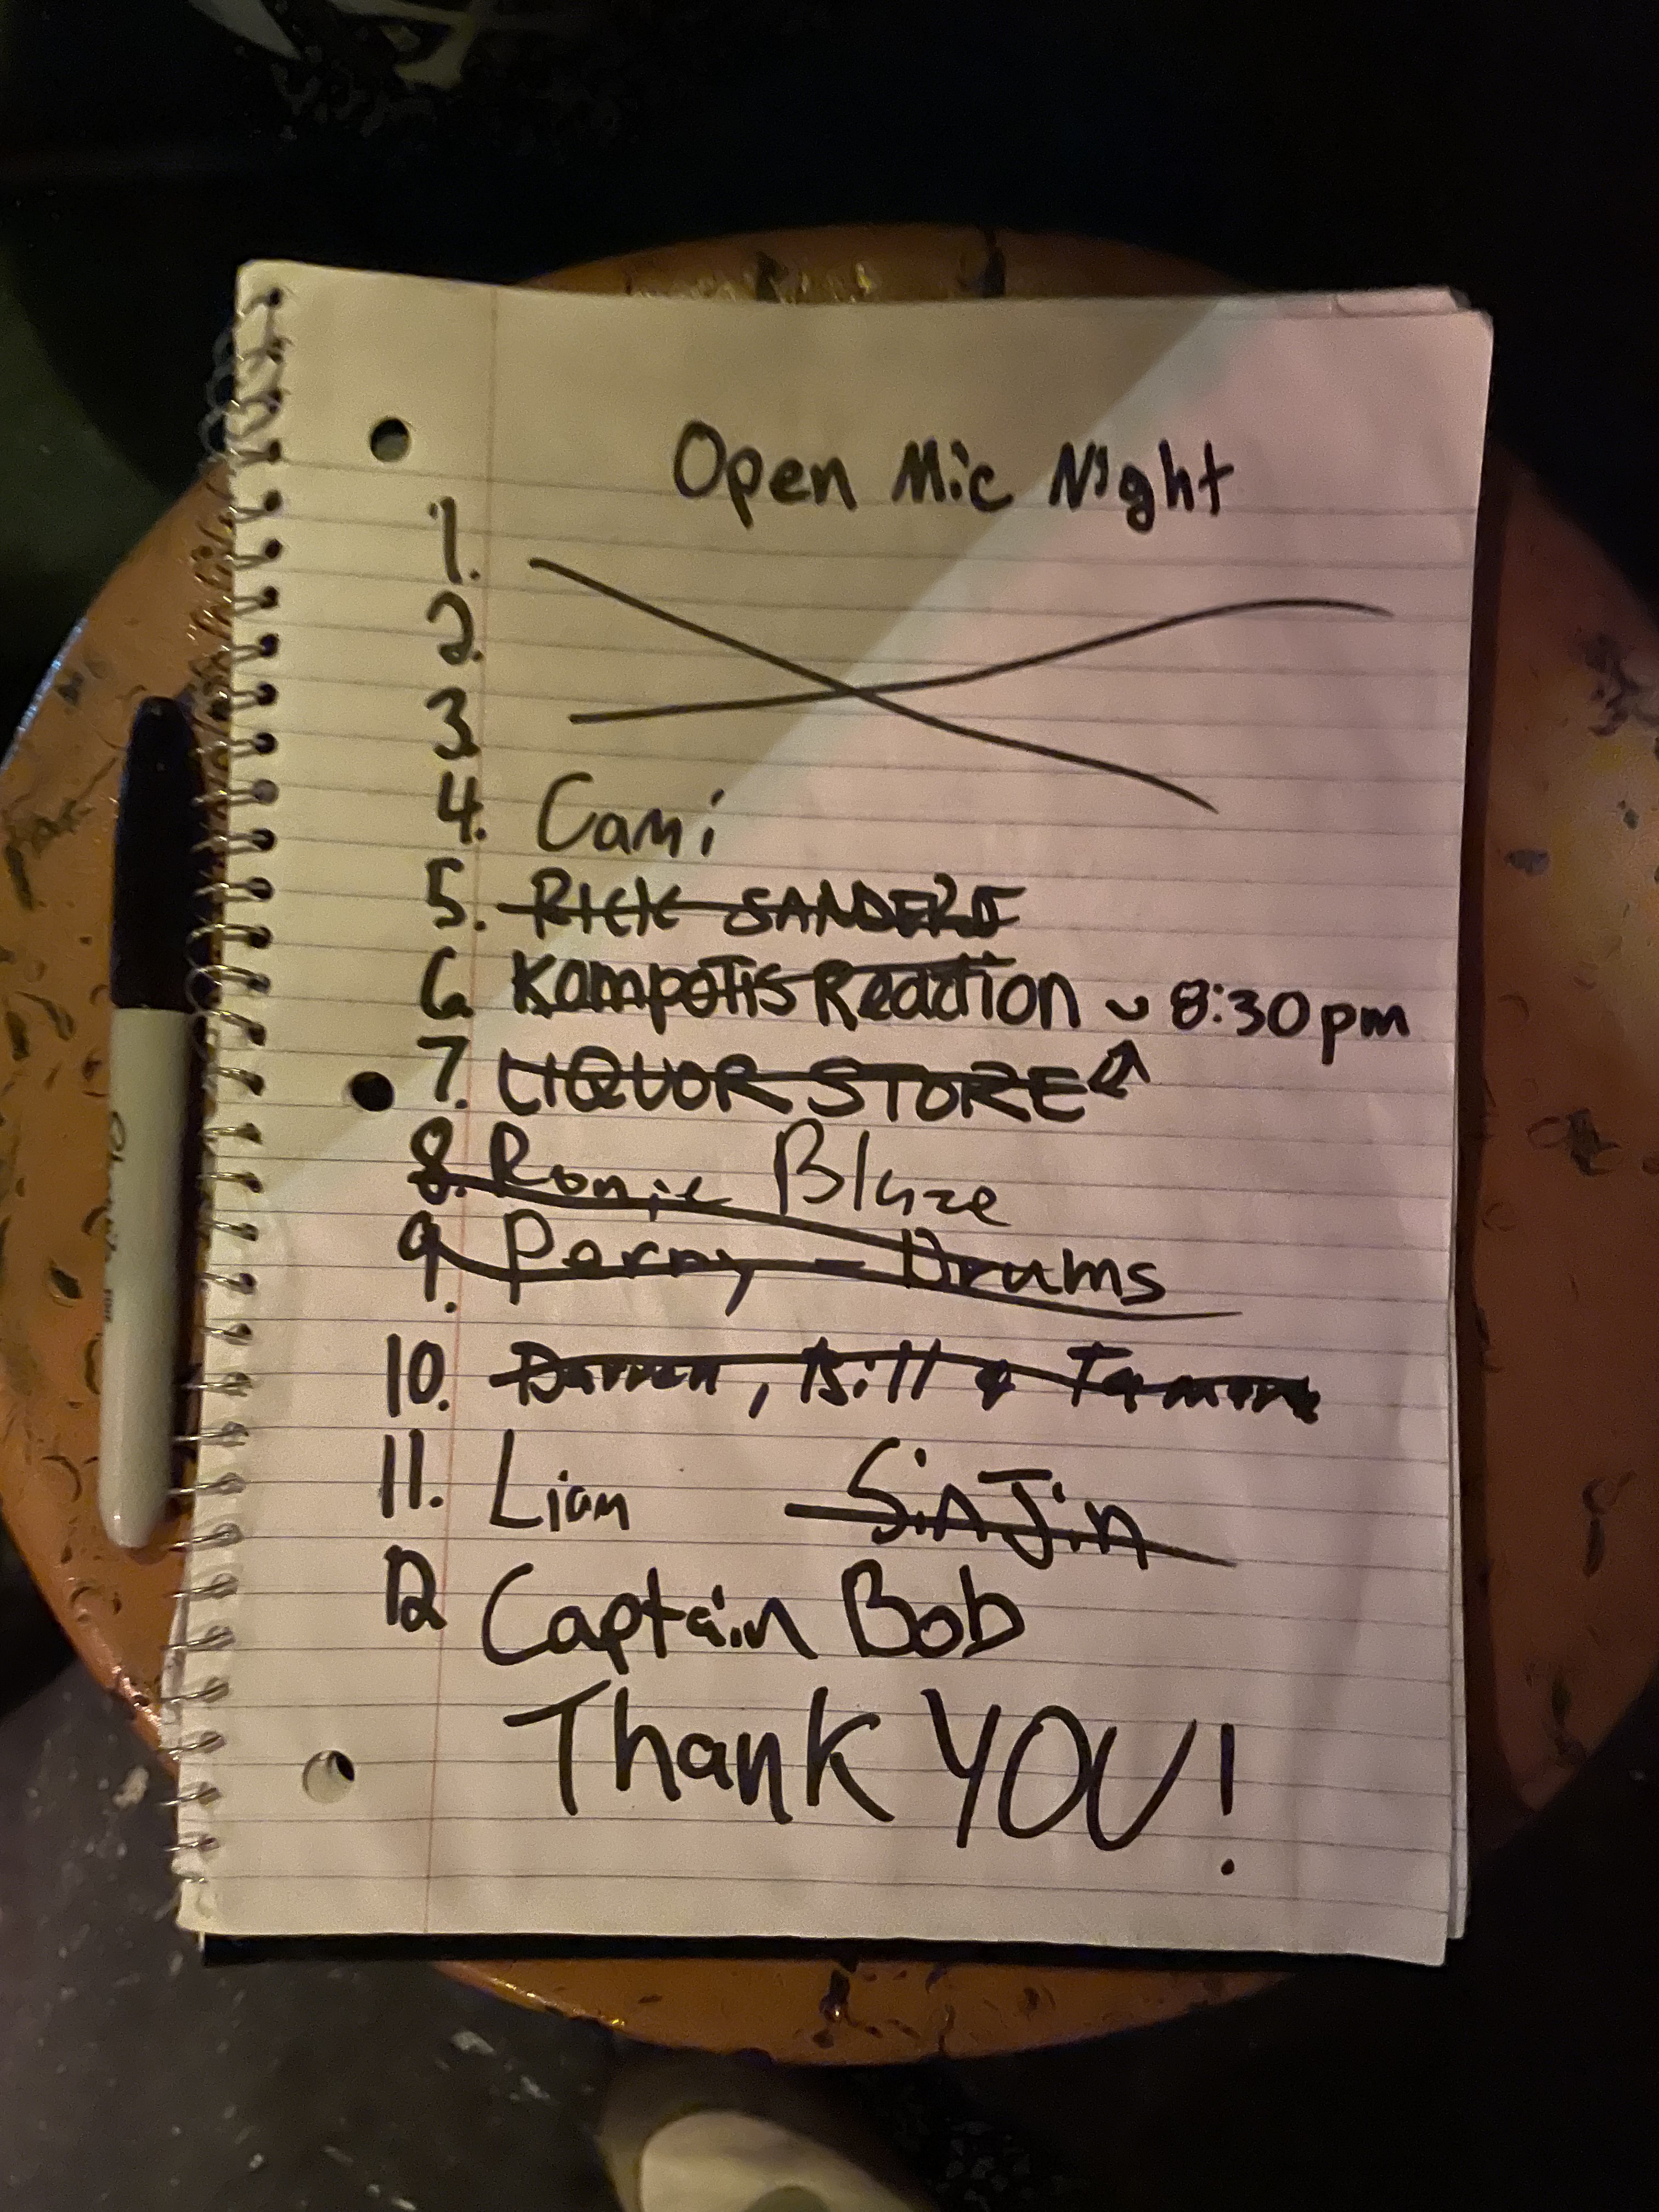 Open Mic Night
1.
2.
3
4. Cami
5. RICK SANDERS
6 Kampotis Reaction ~ 8:30pm
7. LIQUOR STORE
8. Ronix Blyze
9. Percy Drums
10. Darren, Bill &
11. Lian
12 Captain Bob
Thank YOU!